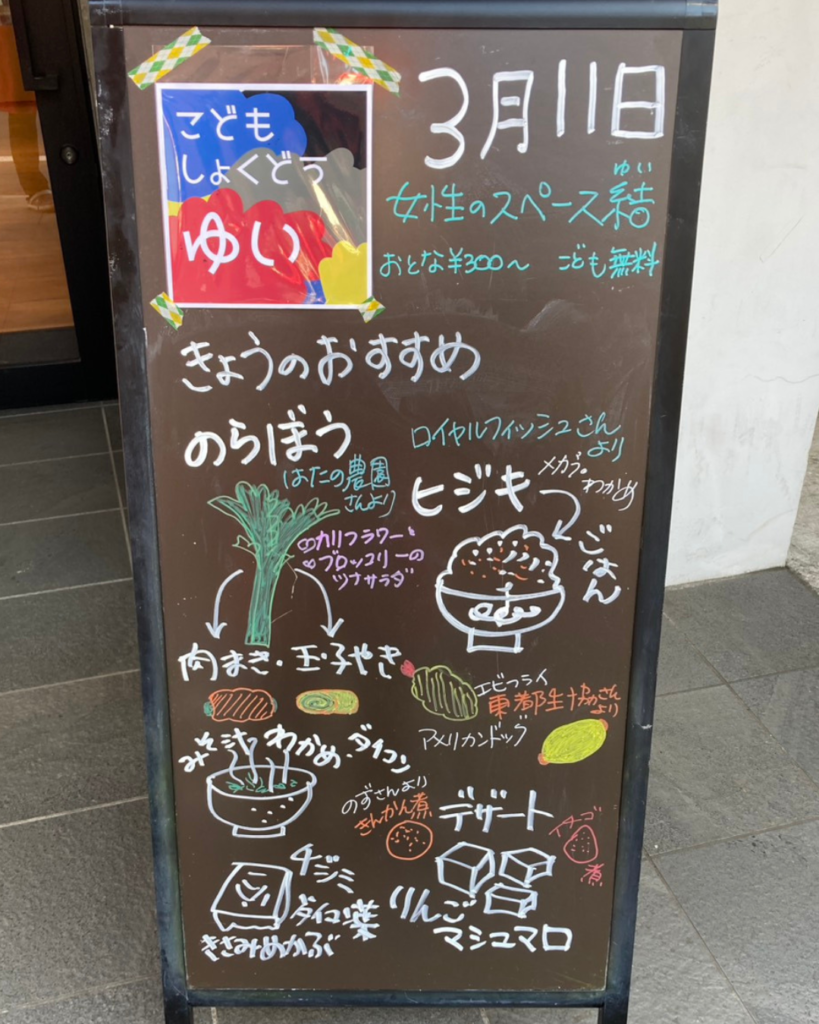 こども
しょくどう
ゆい
3月11日
女性のスペース結
ゆい
おとな¥300〜 こども無料
きょうのおすすめ
のらぼう
はたの農園
さんより
ロイヤルフィッシュさん
より
ヒジキ
メカブ・
わかめ
ごはん
カリフラワーと
ブロッコリーの
ツナサラダ
肉まき・玉子やき
エビフライ
東都生協さん
より
アメリカンドッグ
みそ汁 わかめ・ダイコン
のずさんより
きんかん煮
デザート
イチゴ
煮
チジミ
ダイコン葉
きざみめかぶ
りんご
マシュマロ